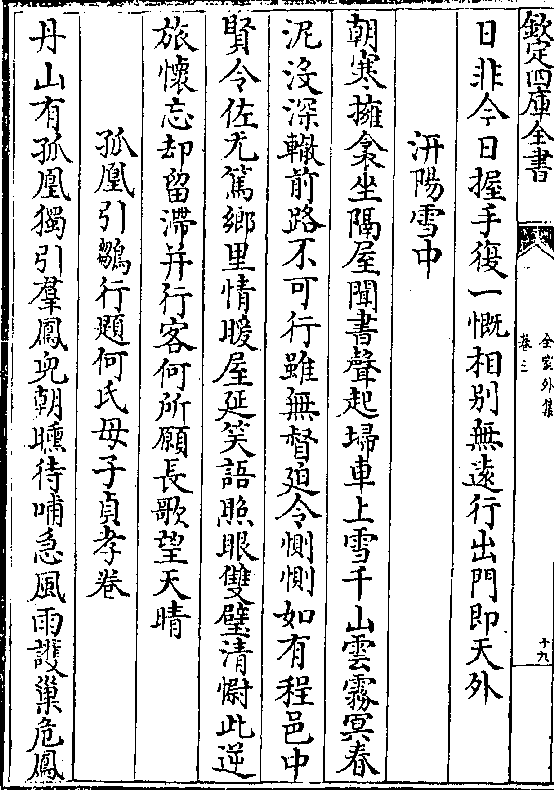 欽定四庫全書
全室外集
卷三
十九
日非今日握手復一慨相别無遠行出門即天外
汧陽雪中
朝寒擁衾坐隔屋聞書聲起埽車上雪千山雲霧冥春
泥没深轍前路不可行雖無督廹令惻惻如有程邑中
賢令佐尤篤鄉里情暖屋延笑語照眼雙璧清慰此逆
旅懷忘却留滯并行客何所願長歌望天晴
孤凰引鶵行題何氏母子貞孝卷
丹山有孤凰獨引羣鳳兒朝曛待哺急風雨護巢危鳳